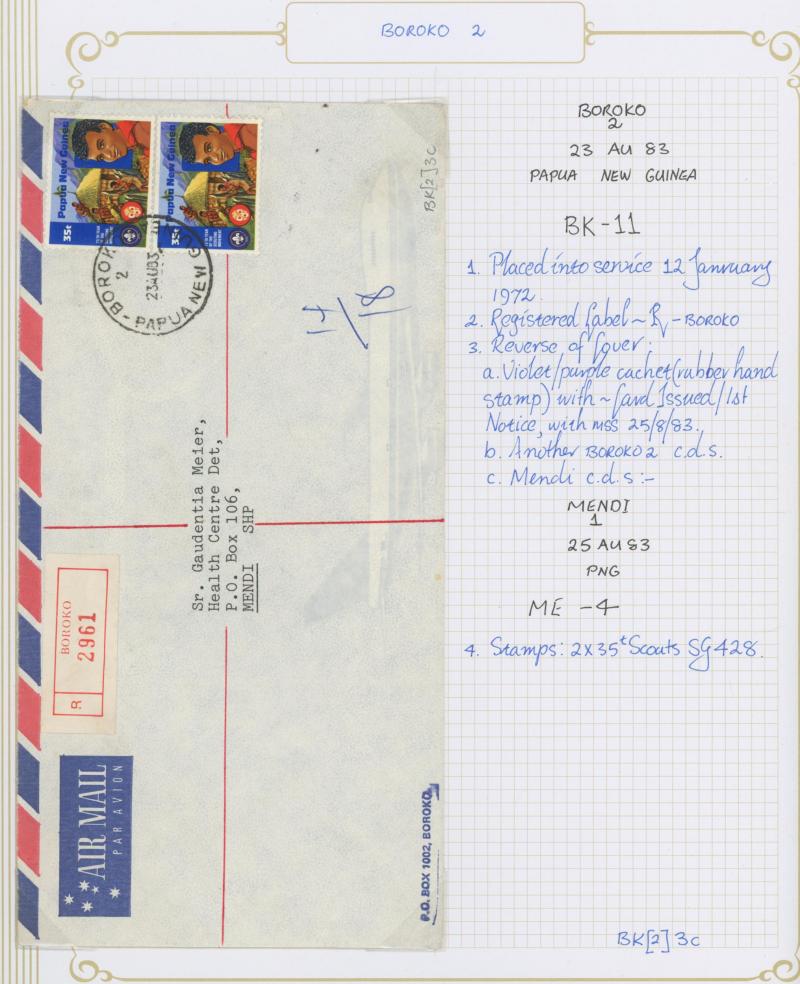 BOROKO 2
BOROKO
2
23 AU 83
PAPUA NEW GUINEA
BK-11
1. Placed into service 12 Janruary
1972.
2. Registered label ~ R - BOROKO
3. Reverse of Cover:
a. Violet/purple cachet (rubber hand
stamp) with ~ Card Issued/1st
Notice, with mss 25/8/83.
b. Another BOROKO 2 c.d.s.
c. Mendi c.d.s :-
MENDI
1
25 AU 83
PNG
ME -4
4. Stamps: 2x35t Scouts SG428.
BK[2]3c
BK[2]3c
Papua New Guinea
35t
Papua New Guinea
35t
BOROKO
2
23AU83
PAPUA NEW GU
Sr. Gaudentia Meier,
Health Centre Det,
P.O. Box 106,
MENDI SHP
BOROKO
R 2961
AIR MAIL
PAR AVION
P.O. BOX 1002, BOROKO